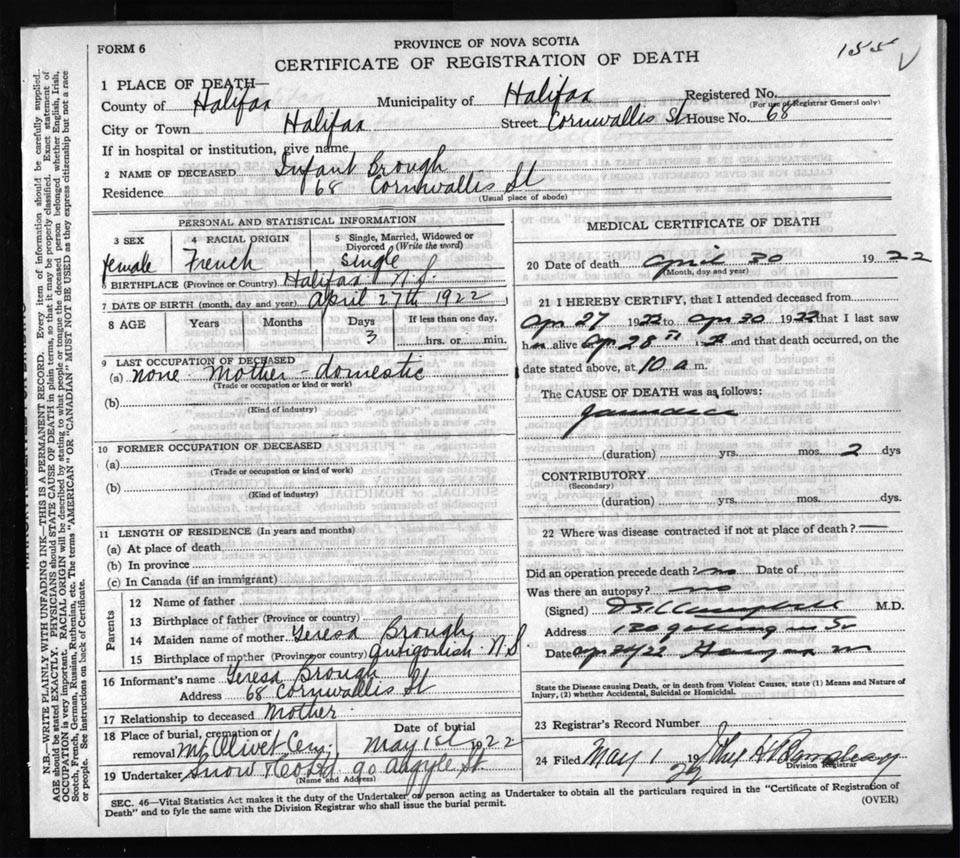 FORM 6
PROVINCE OF NOVA SCOTIA
CERTIFICATE OF REGISTRATION OF DEATH
155
1 PLACE OF DEATH—
County of Halifax Municipality of Halifax Registered No.
(For use of Registrar General only)
City or Town Halifax Street Cornwallis St House No. 68
If in hospital or institution, give name
2 NAME OF DECEASED Infant Brough
Residence 68 Cornwallis St
(Usual place of abode)
PERSONAL AND STATISTICAL INFORMATION
3 SEX female
4 RACIAL ORIGIN French
5 Single, Married, Widowed or Divorced (Write the word) single
6 BIRTHPLACE (Province or Country) Halifax N.S.
7 DATE OF BIRTH (month, day and year) April 27th 1922
8 AGE Years Months Days 3 If less than one day, hrs. or min.
9 LAST OCCUPATION OF DECEASED
(a) none Mother - domestic
(Trade or occupation or kind or work)
(b)
(Kind of industry)
10 FORMER OCCUPATION OF DECEASED
(a)
(Trade or occupation or kind of work)
(b)
(Kind of industry)
11 LENGTH OF RESIDENCE (In years and months)
(a) At place of death
(b) In province
(c) In Canada (if an immigrant)
Parents
12 Name of father
13 Birthplace of father (Province or country)
14 Maiden name of mother Teresa Brough
15 Birthplace of mother (Province or country) Antigonish N S
16 Informant's name Teresa Brough
Address 68 Cornwallis St
17 Relationship to deceased Mother
18 Place of burial, cremation or removal Mt Olivet Cem. Date of burial May 1st 1922
19 Undertaker Snow & Co Ltd 90 Argyle St.
(Name and Address)
MEDICAL CERTIFICATE OF DEATH
20 Date of death April 30 1922
(Month, day and year)
21 I HEREBY CERTIFY, that I attended deceased from
Apr 27 1922 to Apr 30 1922 that I last saw
h alive Apr 28 and that death occurred, on the
date stated above, at 10 a m.
The CAUSE OF DEATH was as follows:
Jaundice
(duration) yrs. mos. 2 dys
CONTRIBUTORY
(Secondary)
(duration) yrs. mos. dys.
22 Where was disease contracted if not at place of death?
Did an operation precede death? no Date of
Was there an autopsy? no
(Signed) Campbell M.D.
Address
Date
State the Disease causing Death, or in death from Violent Causes, state (1) Means and Nature of
Injury, (2) whether Accidental, Suicidal or Homicidal.
23 Registrar's Record Number
24 Filed May 1 1922
Division Registrar
SEC. 46—Vital Statistics Act makes it the duty of the Undertaker or person acting as Undertaker to obtain all the particulars required in the "Certificate of Registration of
Death" and to fyle the same with the Division Registrar who shall issue the burial permit.
(OVER)
N.B.—WRITE PLAINLY WITH UNFADING INK—THIS IS A PERMANENT RECORD. Every item of information should be carefully supplied.
AGE should be stated EXACTLY. PHYSICIANS should STATE CAUSE OF DEATH in plain terms, so that it may be properly classified. Exact statement of
OCCUPATION is very important. RACIAL ORIGIN will be described by stating to what people or tongue the deceased person belonged whether English, Irish,
Scotch, French, German, Russian, Ruthenian, etc. The terms "AMERICAN" OR "CANADIAN" MUST NOT BE USED as they express citizenship but not a race
or people. See instructions on back of Certificate.